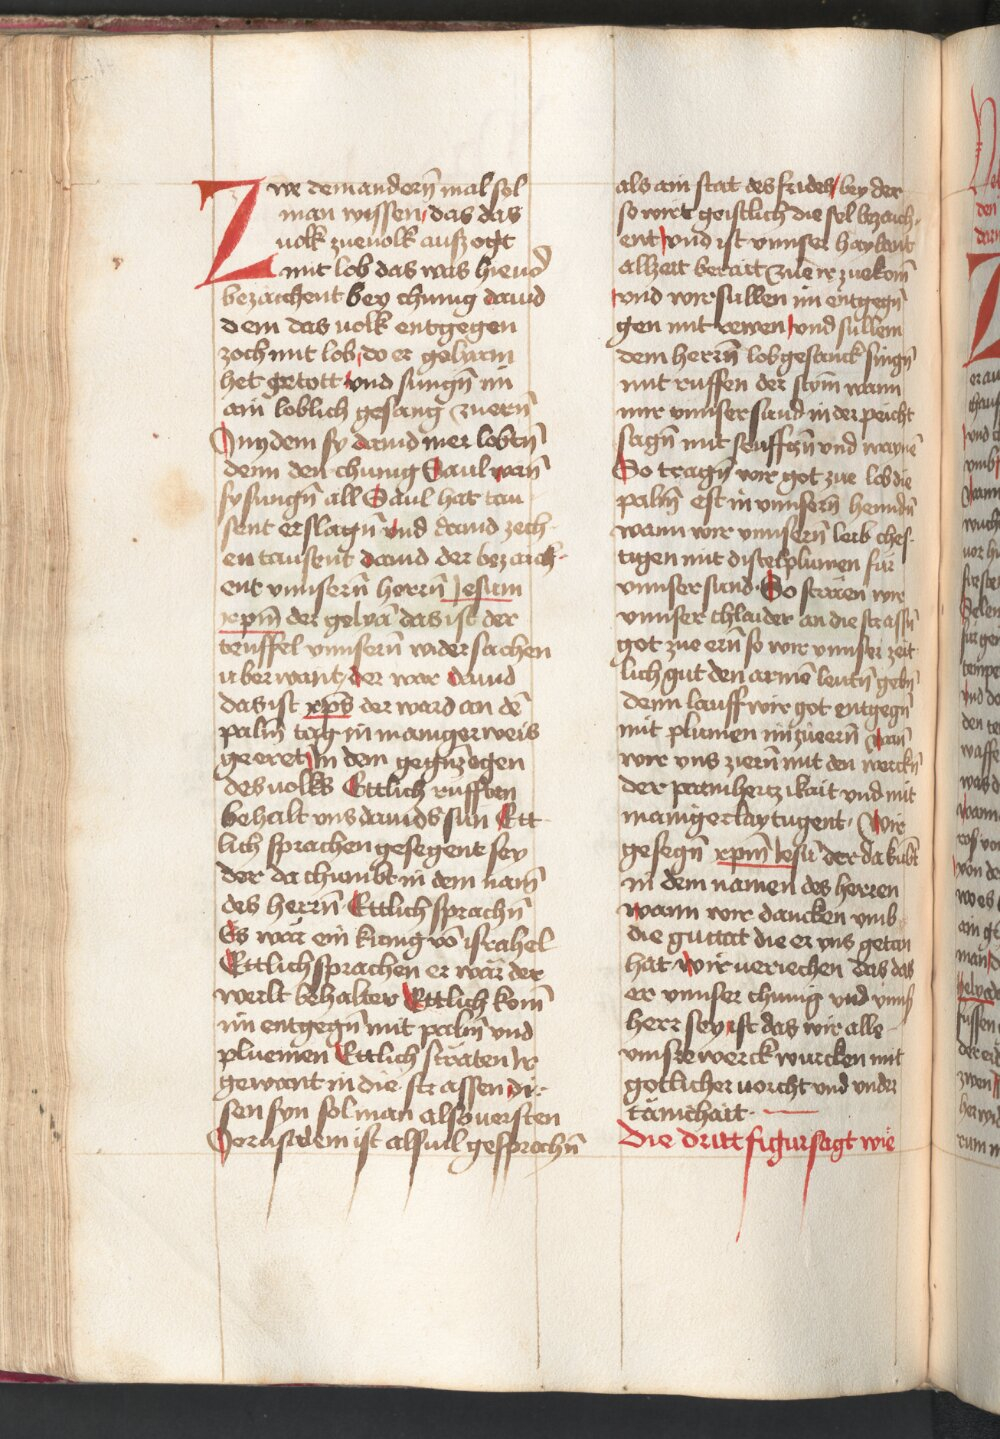 Zwe dem andern̄ mal sol
man wissen, das das
uolk zue uolk ausz ogt
mit lob das was hieuor
bezaichent bey chunig dauid
dem das uolk entgegen
zoch mit lob, do er golyam
het getott vnd sungn̄ im
ain loblich gesang zu ern̄
In dem sy dauid mer lobtn̄
denn den chunig Saul wan̄
sy sungn̄ all Saul hat tau
sent erslagn̄ vnd dauid zech
en tausent dauid der bezaich
ent vnnsern̄ herrn̄ Jesum
xpm̄ der golya das ist der
teuffel vnnsern̄ widersachen
uber want, der war dauid
das ist xps̄ der ward an dē
palm̄ tag in maniger weis
geeret In dem gegn̄zogen
des uolks Ettlich rufften
behalt vns dauids sun Ett
lich sprachen gesegent sey
der da chumbt in dem nam̄
des herrn̄ Ettlich sprachn̄
Es wär ein kunig vō israhel
Ettlich sprachen er wär der
werlt behalter Ettlich kom̄
im entgegn̄ mit palm̄ vnd
pluemen Ettlich sträten ir
gewant in die strassen, di-
sen syn sol man also versten
Jerusalem ist als uil gesprochn̄
als ain stat des frides, bey der
so wirt geistlich die sel bezaich-
ent, vnd ist vnnser haylant
allzeit berait zue ir zuekom̄
vnd wir sullen im entgegn̄
gen mit rewen, vnd sullem
dem herrn̄ lobgesanck singn̄
mit ruffen der stym wann
wir vnnser sund in der peicht
sagn̄ mit seufftzn̄ vnd wayne
So tragn̄ wir got zue lob die
palm̄ est in vnnsern̄ henndn̄
wann wir vnnsern̄ leib ches-
tigen mit disteplumen für
vnnser sund. So sträen wir
vnnser chlaider an die strassn̄
got zue ern̄ so wir vnnser zeit
lich gut den armē leutn̄ gebn̄
denn lauff wir got entgegn̄
mit plumen im zu eern̄ wan̄
wir vns ziern̄ mit den werckn̄
der parmhertzikait vnd mit
maniger lay tugent. Wir
gesegn̄ xpm̄ Jesū der da kūbt
in dem namen des herren
wann wir dancken vmb
die guttat die er vns getan
hat wir ueriechen das das
er vnnser chunig vnd vnns̄
herr sey, ist das wir alle
vnnsre werck wurcken mit
gotlicher uorcht vnd vnder
tänichait.
Die dritt figur sagt wie